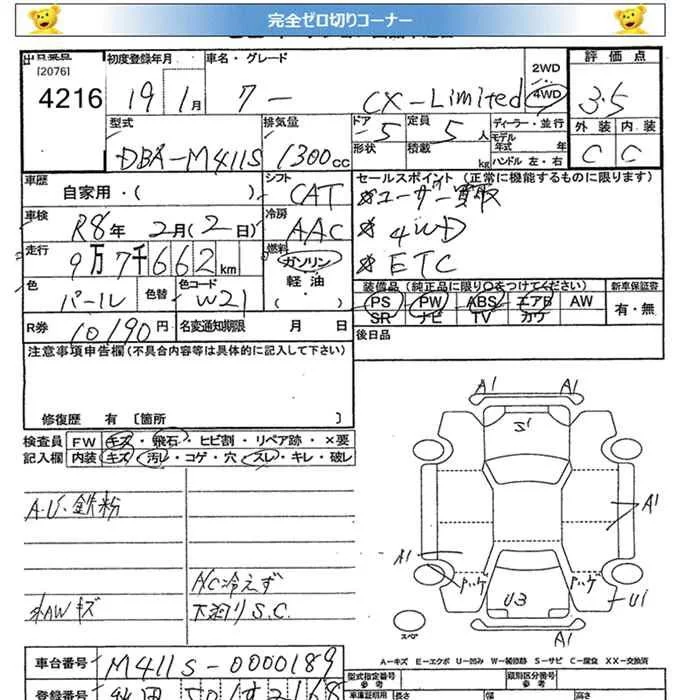 完全ゼロ切りコーナー
[2076]
4216
初度登録年月 19 1月
車名・グレード ブーン CX-Limited
2WD
4WD
評価点 3.5
型式 DBA-M411S
排気量 1300cc
ドア 5
形状
定員 5人
積載 kg
ディーラー・並行
モデル年式 年
ハンドル 左・右
外装 内装
C C
車歴 自家用・( )
シフト CAT
セールスポイント (正常に機能するものに限ります)
※ユーザー買取
※4WD
※ETC
車検 R8年 2月(2日)
冷房 AAC
走行 9万7千662km
燃料 ガソリン
軽油
( )
色 パール
色替
色コード W21
装備品 (純正品に限り○をつけてください)
新車保証書
PS PW ABS エアB AW
SR ナビ TV カワ
有・無
R券 10190円
名変通知期限 月 日
後日品
注意事項申告欄 (不具合内容等は具体的に記入して下さい)
修復歴 有 〔箇所 〕
検査員 FW キズ・飛石・ヒビ割・リペア跡・×要
記入欄 内装 キズ・汚レ・コゲ・穴・スレ・キレ・破レ
A・U・鉄粉
A/C冷えず
AWキズ
下廻りS.C.
A1 A1
S1
A1
A1
ハゲ ハゲ
U3
U1
A1
スペア
A-キズ E-エクボ U-凹み W-補修跡 S-サビ C-腐食 XX-交換済
車台番号 M411S-0000189
型式指定番号
類別区分番号
参考
登録番号
長さ
幅
高さ